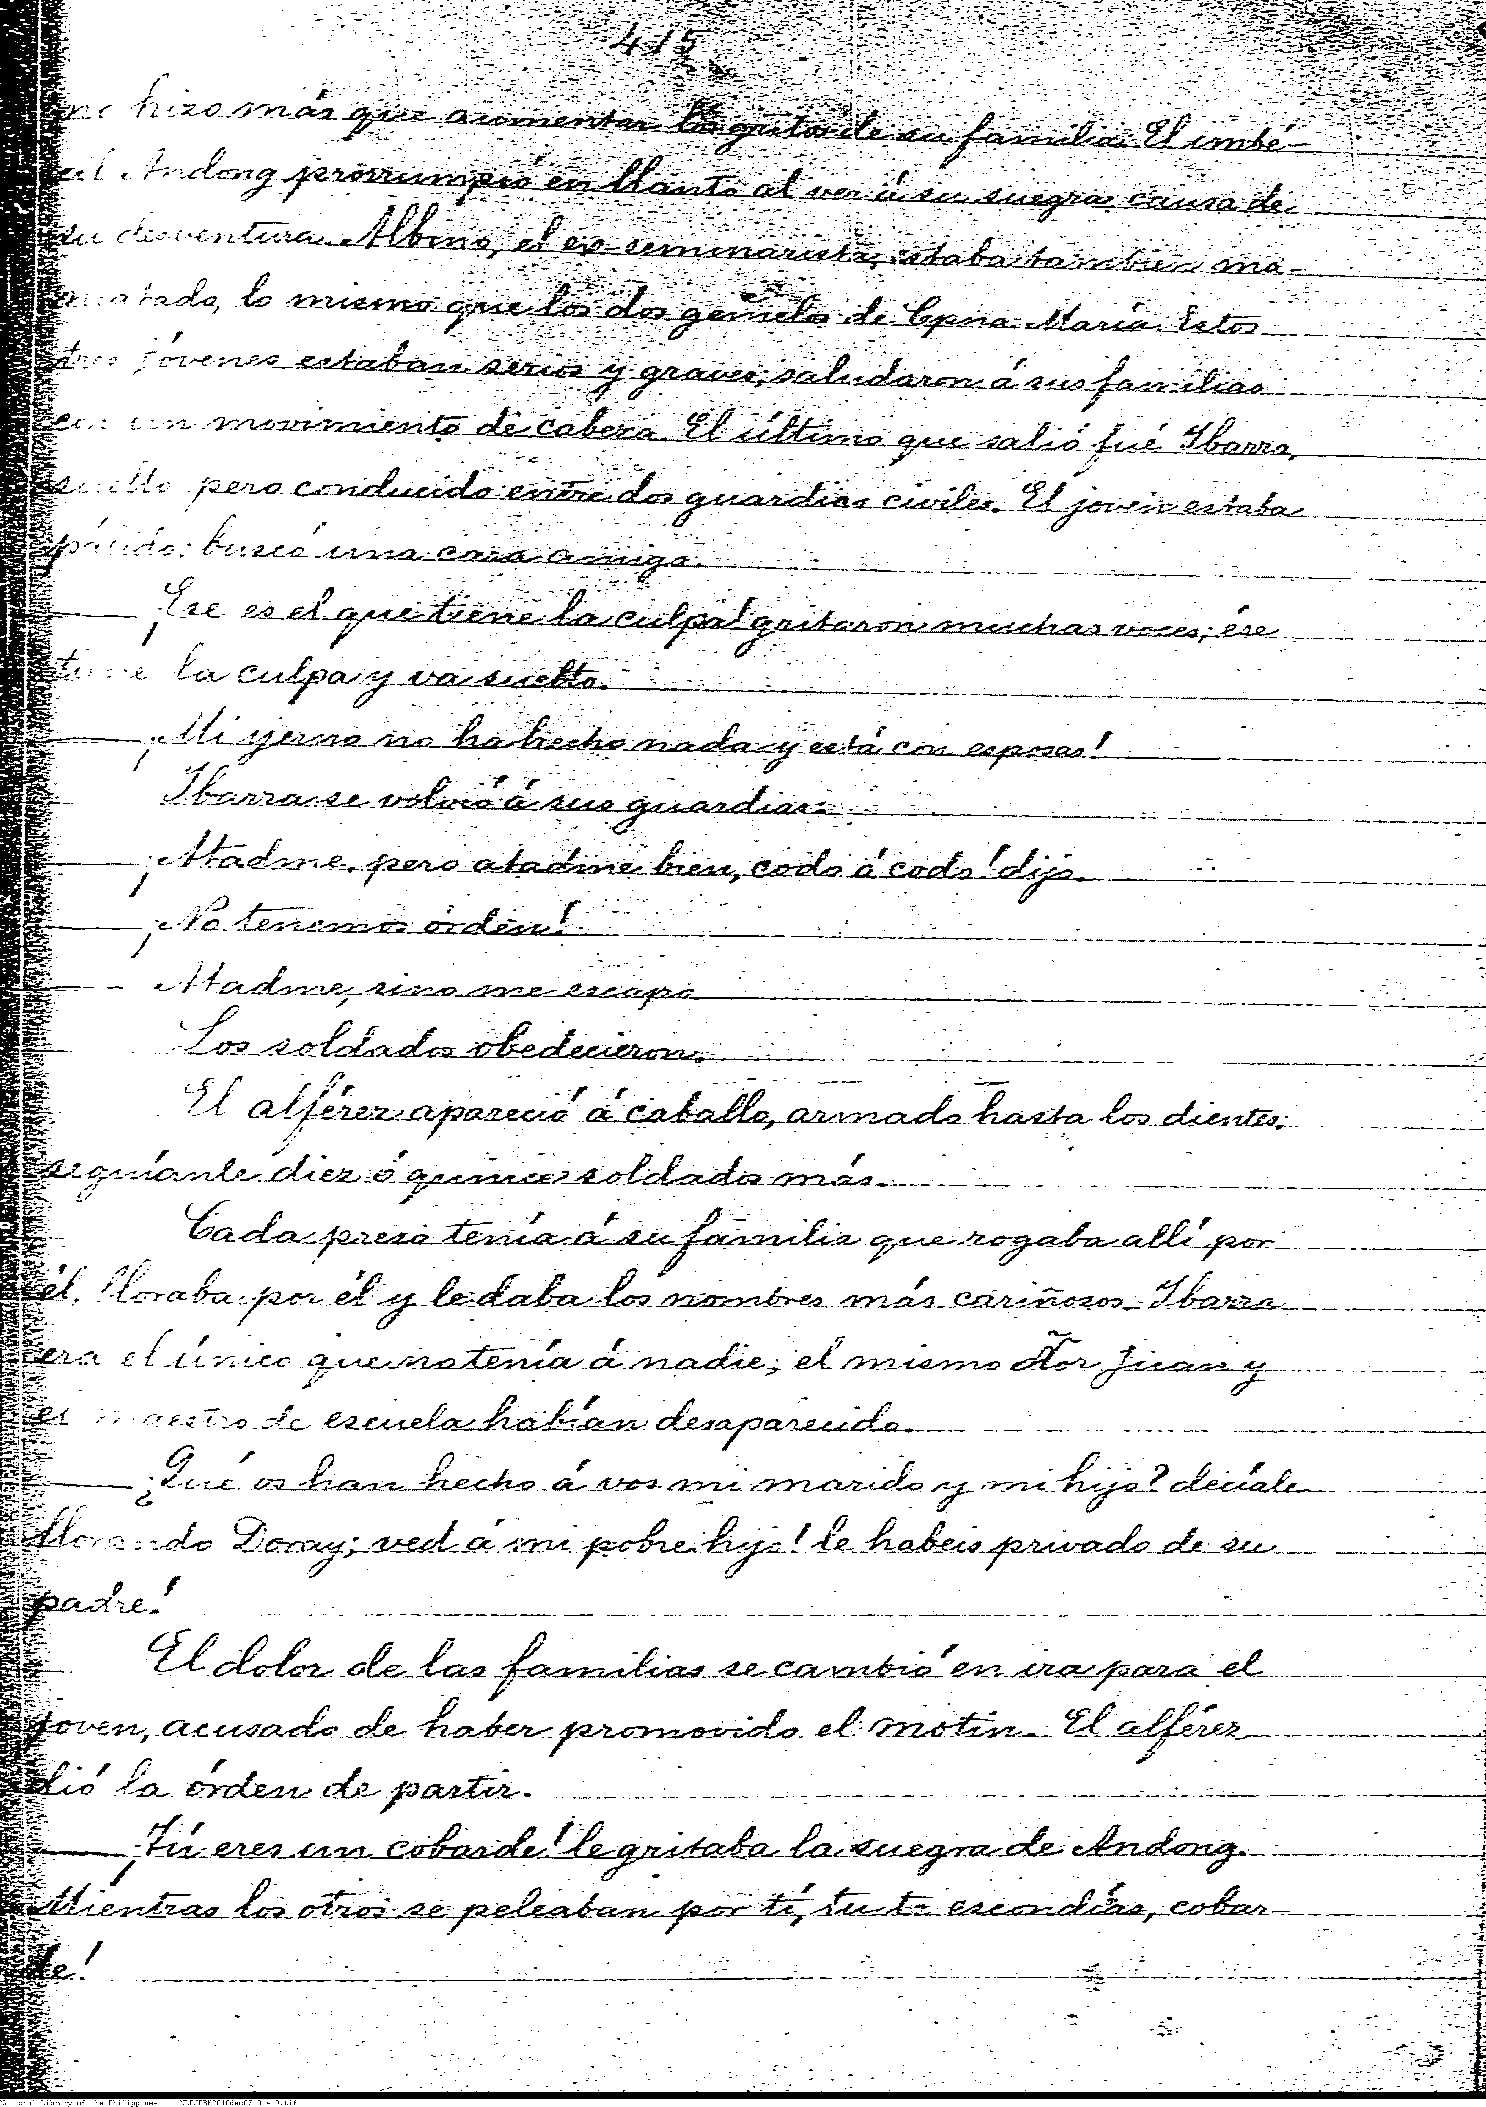 415
no hizo más que aumentar los gritos de su familia. El imbé-
cil Andong prorrumpió en llanto al ver á su suegra causa de
su desventura. Albino, el ex-seminarista, estaba tambien ma-
niatado, lo mismo que los dos gemelos de Cpna. María. Estos
tres jóvenes estaban serios y graves; saludaron á sus familias
con un movimiento de cabeza. El último que salió fué Ibarra,
suelto pero conducido entre dos guardias civiles. El joven estaba
pálido; buscó una cara amiga.
— ¡Ese es el que tiene la culpa! gritaron muchas voces; ése
tiene la culpa y va suelto.
— ¡Mi yerno no ha hecho nada y está con esposas!
Ibarra se volvió á sus guardias:
— ¡Atadme, pero atadme bien, codo á codo! dijo.
— ¡No tenemos órden!
— Atadme, sino me escapo
Los soldados obedecieron.
El alférez apareció á caballo, armado hasta los dientes;
seguíanle diez ó quince soldados más.
Cada preso tenía á su familia que rogaba allí por
él, lloraba por él y le daba los nombres más cariñosos. Ibarra
era el único que no tenía á nadie; el mismo Ñor Juan y
el maestro de escuela habían desaparecido.
— ¿Qué os han hecho á vos mi marido y mi hijo? decíale
llorando Doray; ved á mi pobre hijo! le habeis privado de su
padre!
El dolor de las familias se cambió en ira para el
joven, acusado de haber promovido el motin. El alférez
dió la órden de partir.
— ¡Tú eres un cobarde! le gritaba la suegra de Andong.
Mientras los otros se peleaban por tí, tu te escondías, cobar-
de!